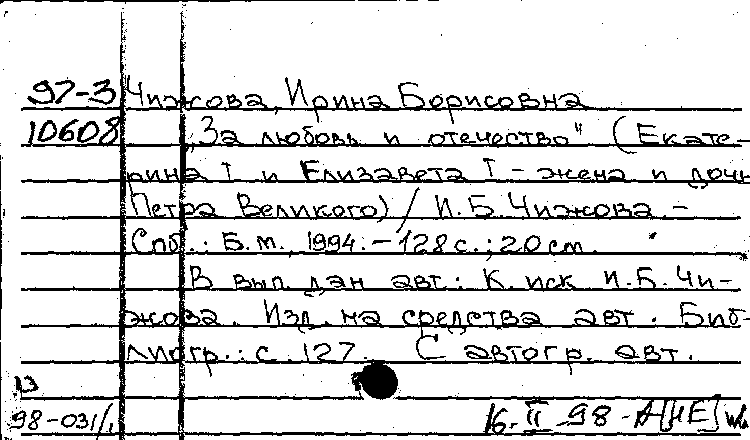 97-3 Чижова, Ирина Борисовна
10608 „За любовь и отечество" (Екате-
рина I и Елизавета I - жена и дочь
Петра Великого) / И.Б. Чижова. -
Спб.: Б.м., 1994. - 128 с.; 20 см.
В вып. дан. авт.: К. иск И.Б. Чи-
жова. Изд. на средства авт. Биб-
лиогр.: с. 127. С автогр. авт.
98-031/1 16.II.98 - А[НЕ]